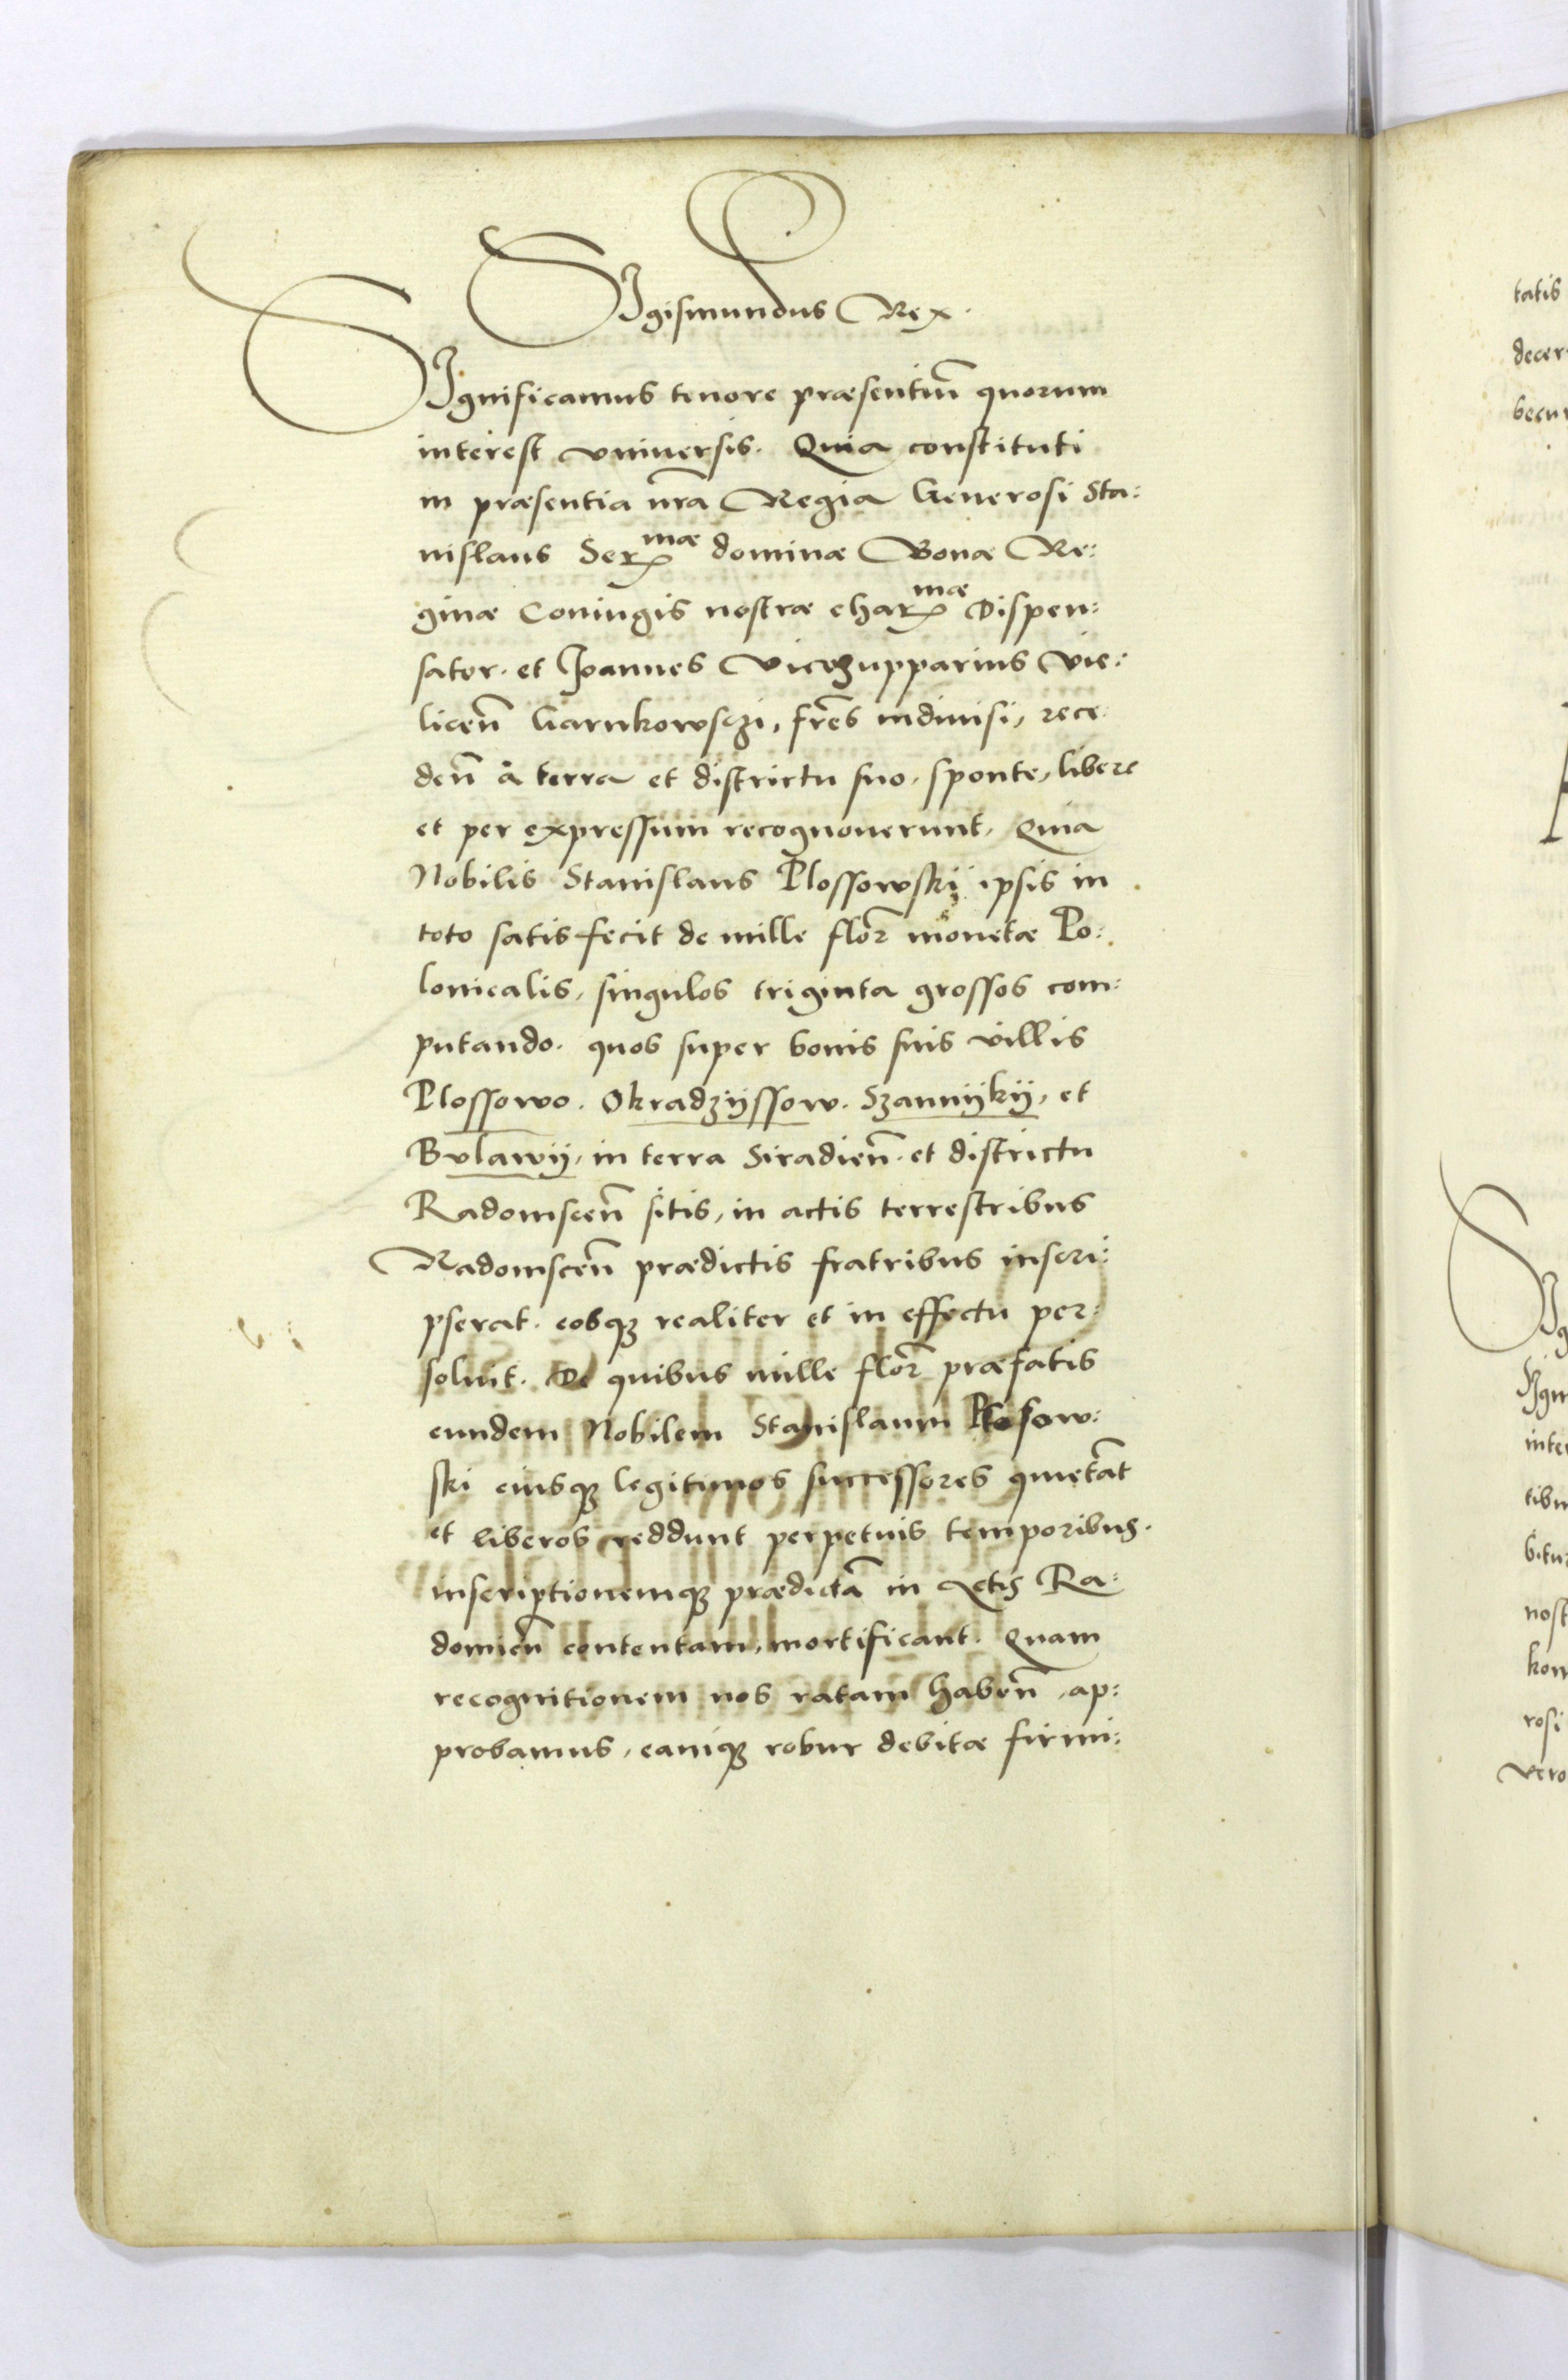 Sigismundus Rex.
Significamus tenore præsentiū quorum
interest vniuersis. Quia constituti
in præsentia nr̃a Regia Generosi Sta:
nislaus Sermæ dominæ Bonæ Re:
ginæ Coniugis nostræ charmæ Dispen:
sator. et Joannes Vicezupparius Vie:
liceñ Garnkowsczi, frẽs indiuisi, rece:
deñ a terra et districtu suo. sponte, libere
et per expressum recognouerunt, Quia
Nobilis Stanislaus Plossowski ipsis in
toto satisfecit de mille florẽ monetæ Po:
lonicalis, singulos triginta grossos com:
putando. quos super bonis suis villis
Plossowo. Okradzijssow. Szannijkij, et
Bvlawij, in terra Siradieñ. et districtu
Radomsceñ sitis, in actis terrestribus
Radomsceñ prædictis fratribus inscri:
pserat. eosq3 realiter et in effectu per:
soluit. De quibus mille florẽ præfatis
eundem Nobilem Stanislaum Plosow:
ski eiusq3 legitimos successores quietāt
et liberos reddunt perpetuis temporibus.
inscriptionemq3 prædictā in Actis Ra:
domieñ contentam, mortificant. Quam
recognitionem nos ratam habeñ, ap:
probamus, eamq3 robur debitæ firmi:
tatis
decer
nost
rosi
vero